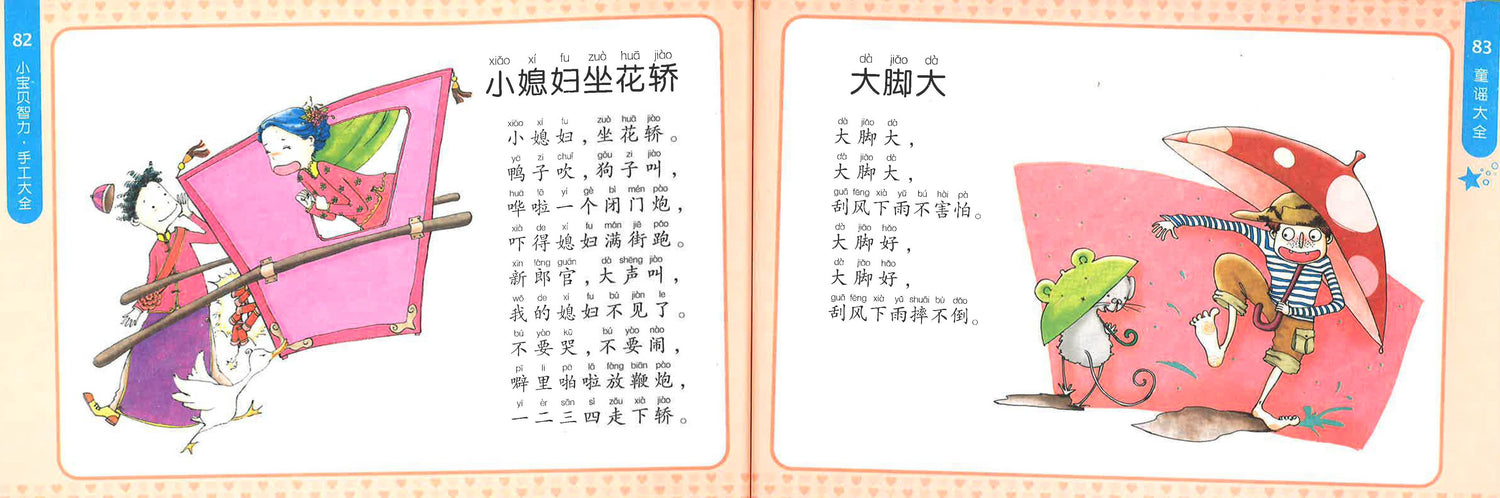 82
小宝贝智力·手工大全
xiǎo xí fu zuò huā jiào
小媳妇坐花轿
xiǎo xí fu zuò huā jiào
小媳妇，坐花轿。
yā zi chuī gǒu zi jiào
鸭子吹，狗子叫，
huā lā yí gè bì mén pào
哗啦一个闭门炮，
xià de xí fu mǎn jiē pǎo
吓得媳妇满街跑。
xīn láng guān dà shēng jiào
新郎官，大声叫，
wǒ de xí fu bú jiàn le
我的媳妇不见了。
bú yào kū bú yào nào
不要哭，不要闹，
pī li pā lā fàng biān pào
噼里啪啦放鞭炮，
yī èr sān sì zǒu xià jiào
一二三四走下轿。
83
童谣大全
dà jiǎo dà
大脚大
dà jiǎo dà
大脚大，
dà jiǎo dà
大脚大，
guā fēng xià yǔ bú hài pà
刮风下雨不害怕。
dà jiǎo hǎo
大脚好，
dà jiǎo hǎo
大脚好，
guā fēng xià yǔ shuāi bù dǎo
刮风下雨摔不倒。